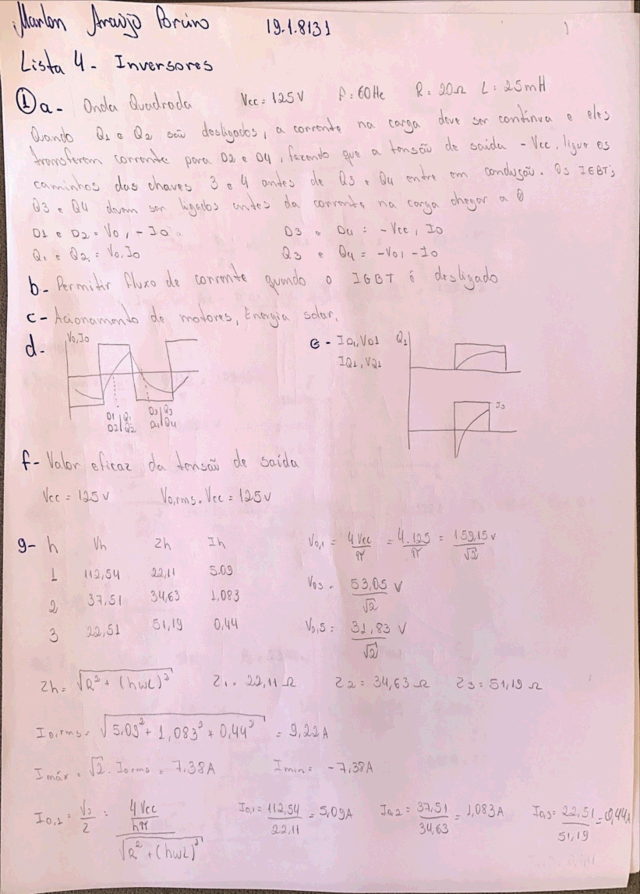 Marlon Araújo Bruno 19.1.8131
1
Lista 4 - Inversores
① a - Onda Quadrada Vcc = 125V f = 60Hz R = 20Ω L = 25mH
Quando Q1 e Q2 são desligados, a corrente na carga deve ser contínua e eles
transferem corrente para D2 e D4, fazendo que a tensão de saída -Vcc, ligue os
caminhos das chaves 3 e 4 antes de Q3 e Q4 entre em condução. Os IGBTs
Q3 e Q4 devem ser ligados antes da corrente na carga chegar a 0
D1 e D2 = Vo, -Io D3 e D4 = -Vcc, Io
Q1 e Q2 = Vo, Io Q3 e Q4 = -Vo, -Io
b - Permitir fluxo de corrente quando o IGBT é desligado
c - Acionamento de motores, Energia solar,
d - Vo, Io
D1 Q1 D3 Q3
D2 Q2 D4 Q4
e - IQ1, VQ1 Q1
IQ1, VQ1
Io
f - Valor eficaz da tensão de saída
Vcc = 125V Vo,rms = Vcc = 125V
g - h Vh Zh Ih
1 112,54 22,11 5,09
2 37,51 34,63 1,083
3 22,51 51,19 0,44
Vo,1 = 4Vcc/π = 4.125/π = 159,15V/√2
Vo3 = 53,05 V/√2
Vo,5 = 31,83 V/√2
Zh = √R² + (hωL)² Z1 = 22,11 Ω Z2 = 34,63 Ω Z3 = 51,19 Ω
Io,rms = √5,09² + 1,083² + 0,44² = 5,22A
Imáx = √2 . Iorms = 7,38A Imin = -7,38A
Io,1 = Vo/Z = 4Vcc/hπ / √R² + (hωL)² Io,1 = 112,54/22,11 = 5,09A Io,2 = 37,51/34,63 = 1,083A Io,3 = 22,51/51,19 = 0,44A